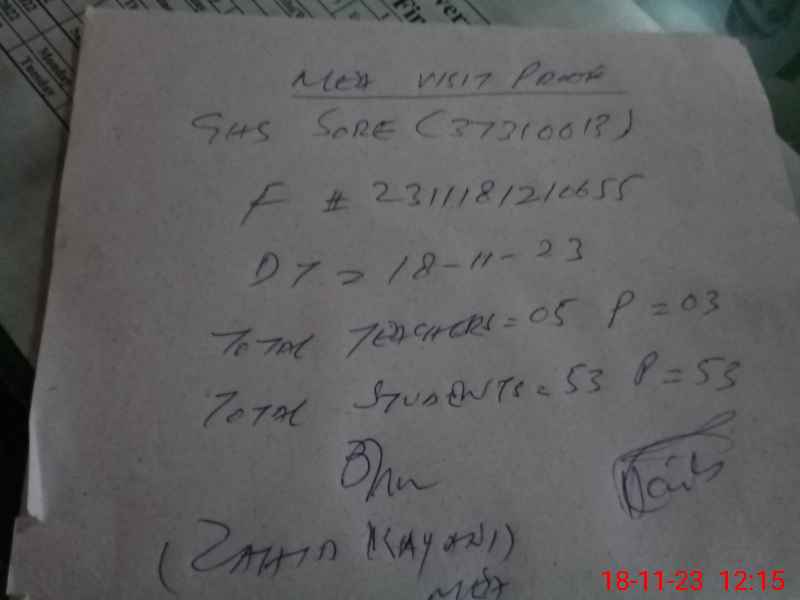 ver
Fir
Monday
Tuesday
MEA VISIT PROOF
GHS SORE (37310013)
F # 231118121655
DT = 18-11-23
TOTAL TEACHERS = 05 P = 03
TOTAL STUDENTS = 53 P = 53
(ZAHID KAYANI)
MEA
18-11-23 12:15